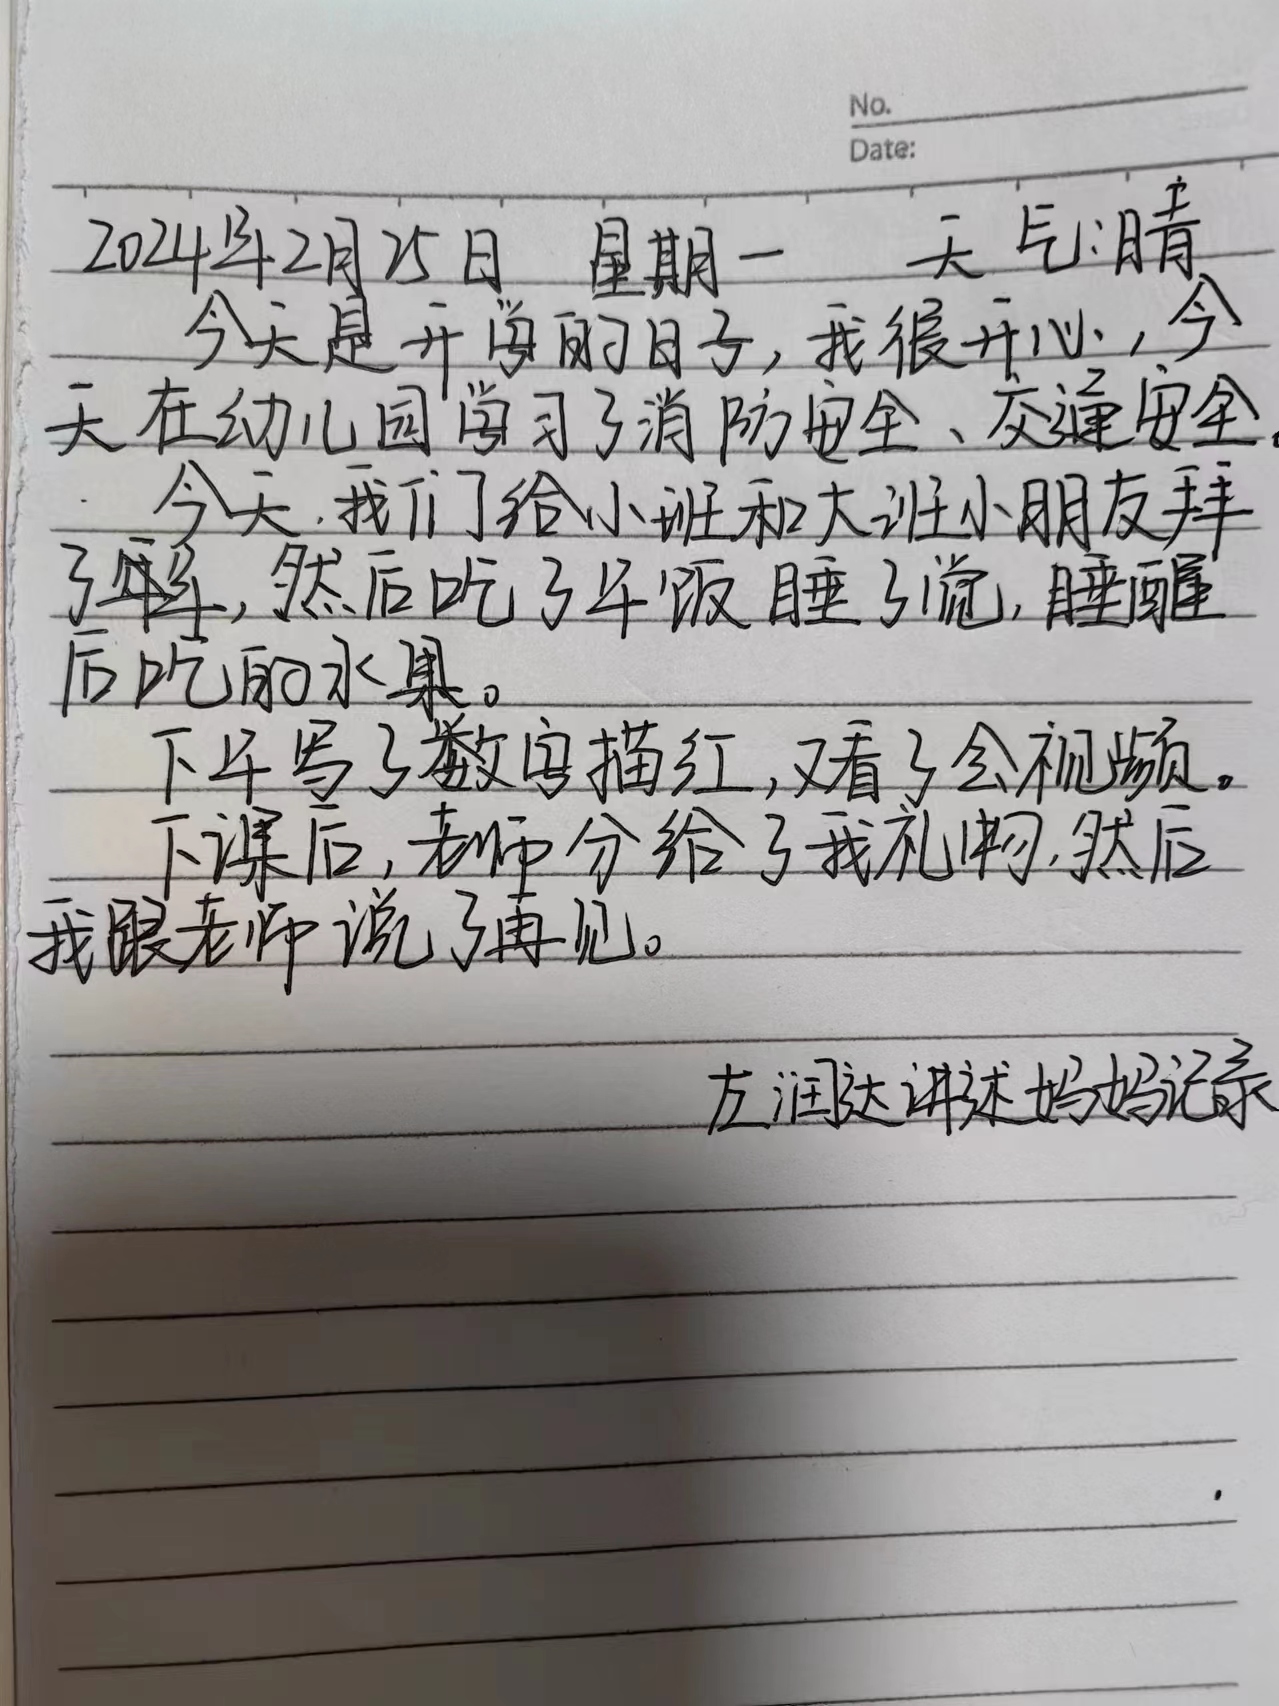 No.
Date:
2024年2月25日 星期一 天气:晴
今天是开学的日子,我很开心,今
天在幼儿园学习了消防安全、交通安全。
今天,我们给小班和大班小朋友拜
了年,然后吃了午饭睡了觉,睡醒
后吃的水果。
下午写了数字描红,又看了会视频。
下课后,老师分给了我礼物,然后
我跟老师说了再见。
左润达讲述妈妈记录